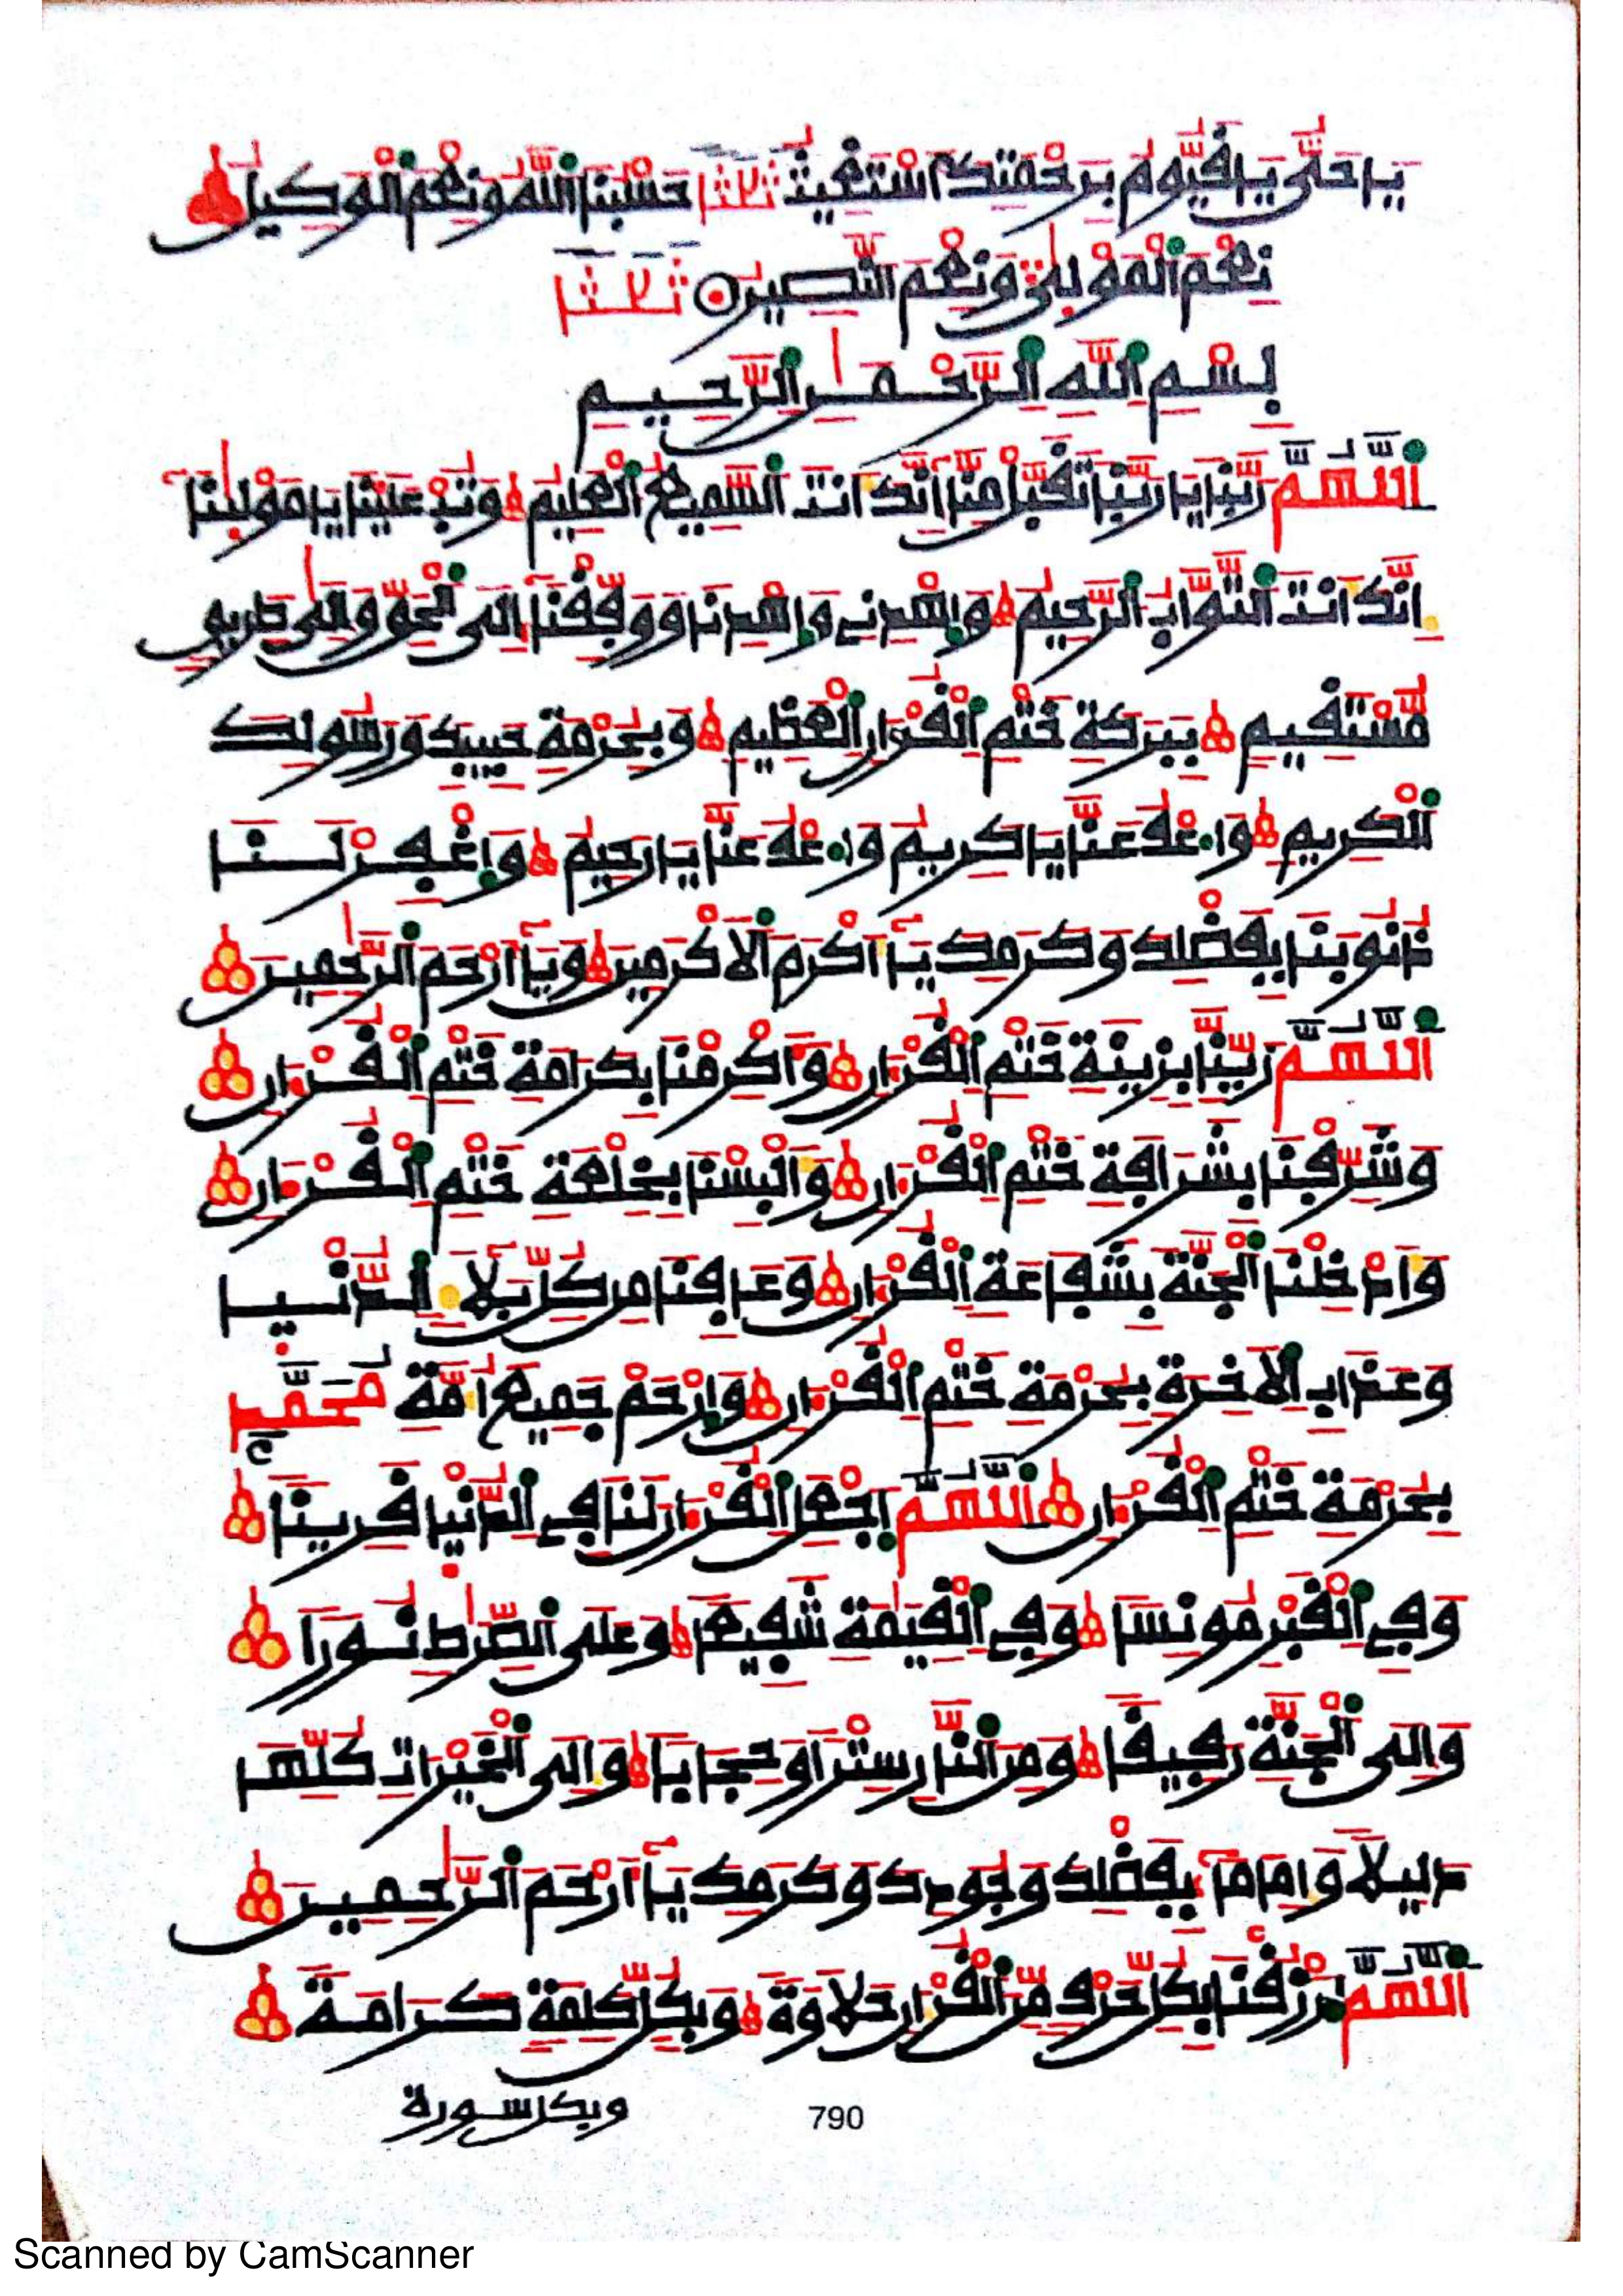 يَا حَيُّ يَا قَيُّومُ بِرَحْمَتِكَ أَسْتَغِيثُ ثَلَاثًا حَسْبُنَا اللَّهُ وَنِعْمَ الْوَكِيلُ
نِعْمَ الْمَوْلَىٰ وَنِعْمَ النَّصِيرُ ثَلَاثًا
بِسْمِ اللَّهِ الرَّحْمَٰنِ الرَّحِيمِ
اللَّهُمَّ رَبَّنَا يَا رَبَّنَا تَقَبَّلْ مِنَّا إِنَّكَ أَنتَ السَّمِيعُ الْعَلِيمُ وَتُبْ عَلَيْنَا يَا مَوْلَىٰنَا
إِنَّكَ أَنتَ التَّوَّابُ الرَّحِيمُ وَاهْدِنِي وَاهْدِنَا وَوَفِّقْنَا إِلَى الْحَقِّ وَإِلَىٰ طَرِيقٍ
مُّسْتَقِيمٍ بِبَرَكَةِ خَتْمِ الْقُرْءَانِ الْعَظِيمِ وَبِحُرْمَةِ حَبِيبِكَ وَرَسُولِكَ
الْكَرِيمِ وَاعْفُ عَنَّا يَا كَرِيمُ وَاعْفُ عَنَّا يَا رَحِيمُ وَاغْفِرْ لَنَا
ذُنُوبَنَا بِفَضْلِكَ وَكَرَمِكَ يَا أَكْرَمَ الْأَكْرَمِينَ وَيَا أَرْحَمَ الرَّٰحِمِينَ
اللَّهُمَّ زَيِّنَّا بِزِينَةِ خَتْمِ الْقُرْءَانِ وَأَكْرِمْنَا بِكَرَامَةِ خَتْمِ الْقُرْءَانِ
وَشَرِّفْنَا بِشَرَافَةِ خَتْمِ الْقُرْءَانِ وَأَلْبِسْنَا بِخِلْعَةِ خَتْمِ الْقُرْءَانِ
وَأَدْخِلْنَا الْجَنَّةَ بِشَفَاعَةِ الْقُرْءَانِ وَعَافِنَا مِن كُلِّ بَلَاءِ الدُّنْيَا
وَعَذَابِ الْآخِرَةِ بِحُرْمَةِ خَتْمِ الْقُرْءَانِ وَارْحَمْ جَمِيعَ أُمَّةِ مُحَمَّدٍ
بِحُرْمَةِ خَتْمِ الْقُرْءَانِ اللَّهُمَّ اجْعَلِ الْقُرْءَانَ لَنَا فِي الدُّنْيَا قَرِينًا
وَفِي الْقَبْرِ مُونِسًا وَفِي الْقِيَٰمَةِ شَفِيعًا وَعَلَى الصِّرَٰطِ نُورًا
وَإِلَى الْجَنَّةِ رَفِيقًا وَمِنَ النَّارِ سِتْرًا وَحِجَابًا وَإِلَى الْخَيْرَاتِ كُلِّهَا
دَلِيلًا وَإِمَامًا بِفَضْلِكَ وَجُودِكَ وَكَرَمِكَ يَا أَرْحَمَ الرَّٰحِمِينَ
اللَّهُمَّ ارْزُقْنَا بِكُلِّ حَرْفٍ مِّنَ الْقُرْءَانِ حَلَاوَةً وَبِكُلِّ كَلِمَةٍ كَرَامَةً
وبكل سورة
790
Scanned by CamScanner